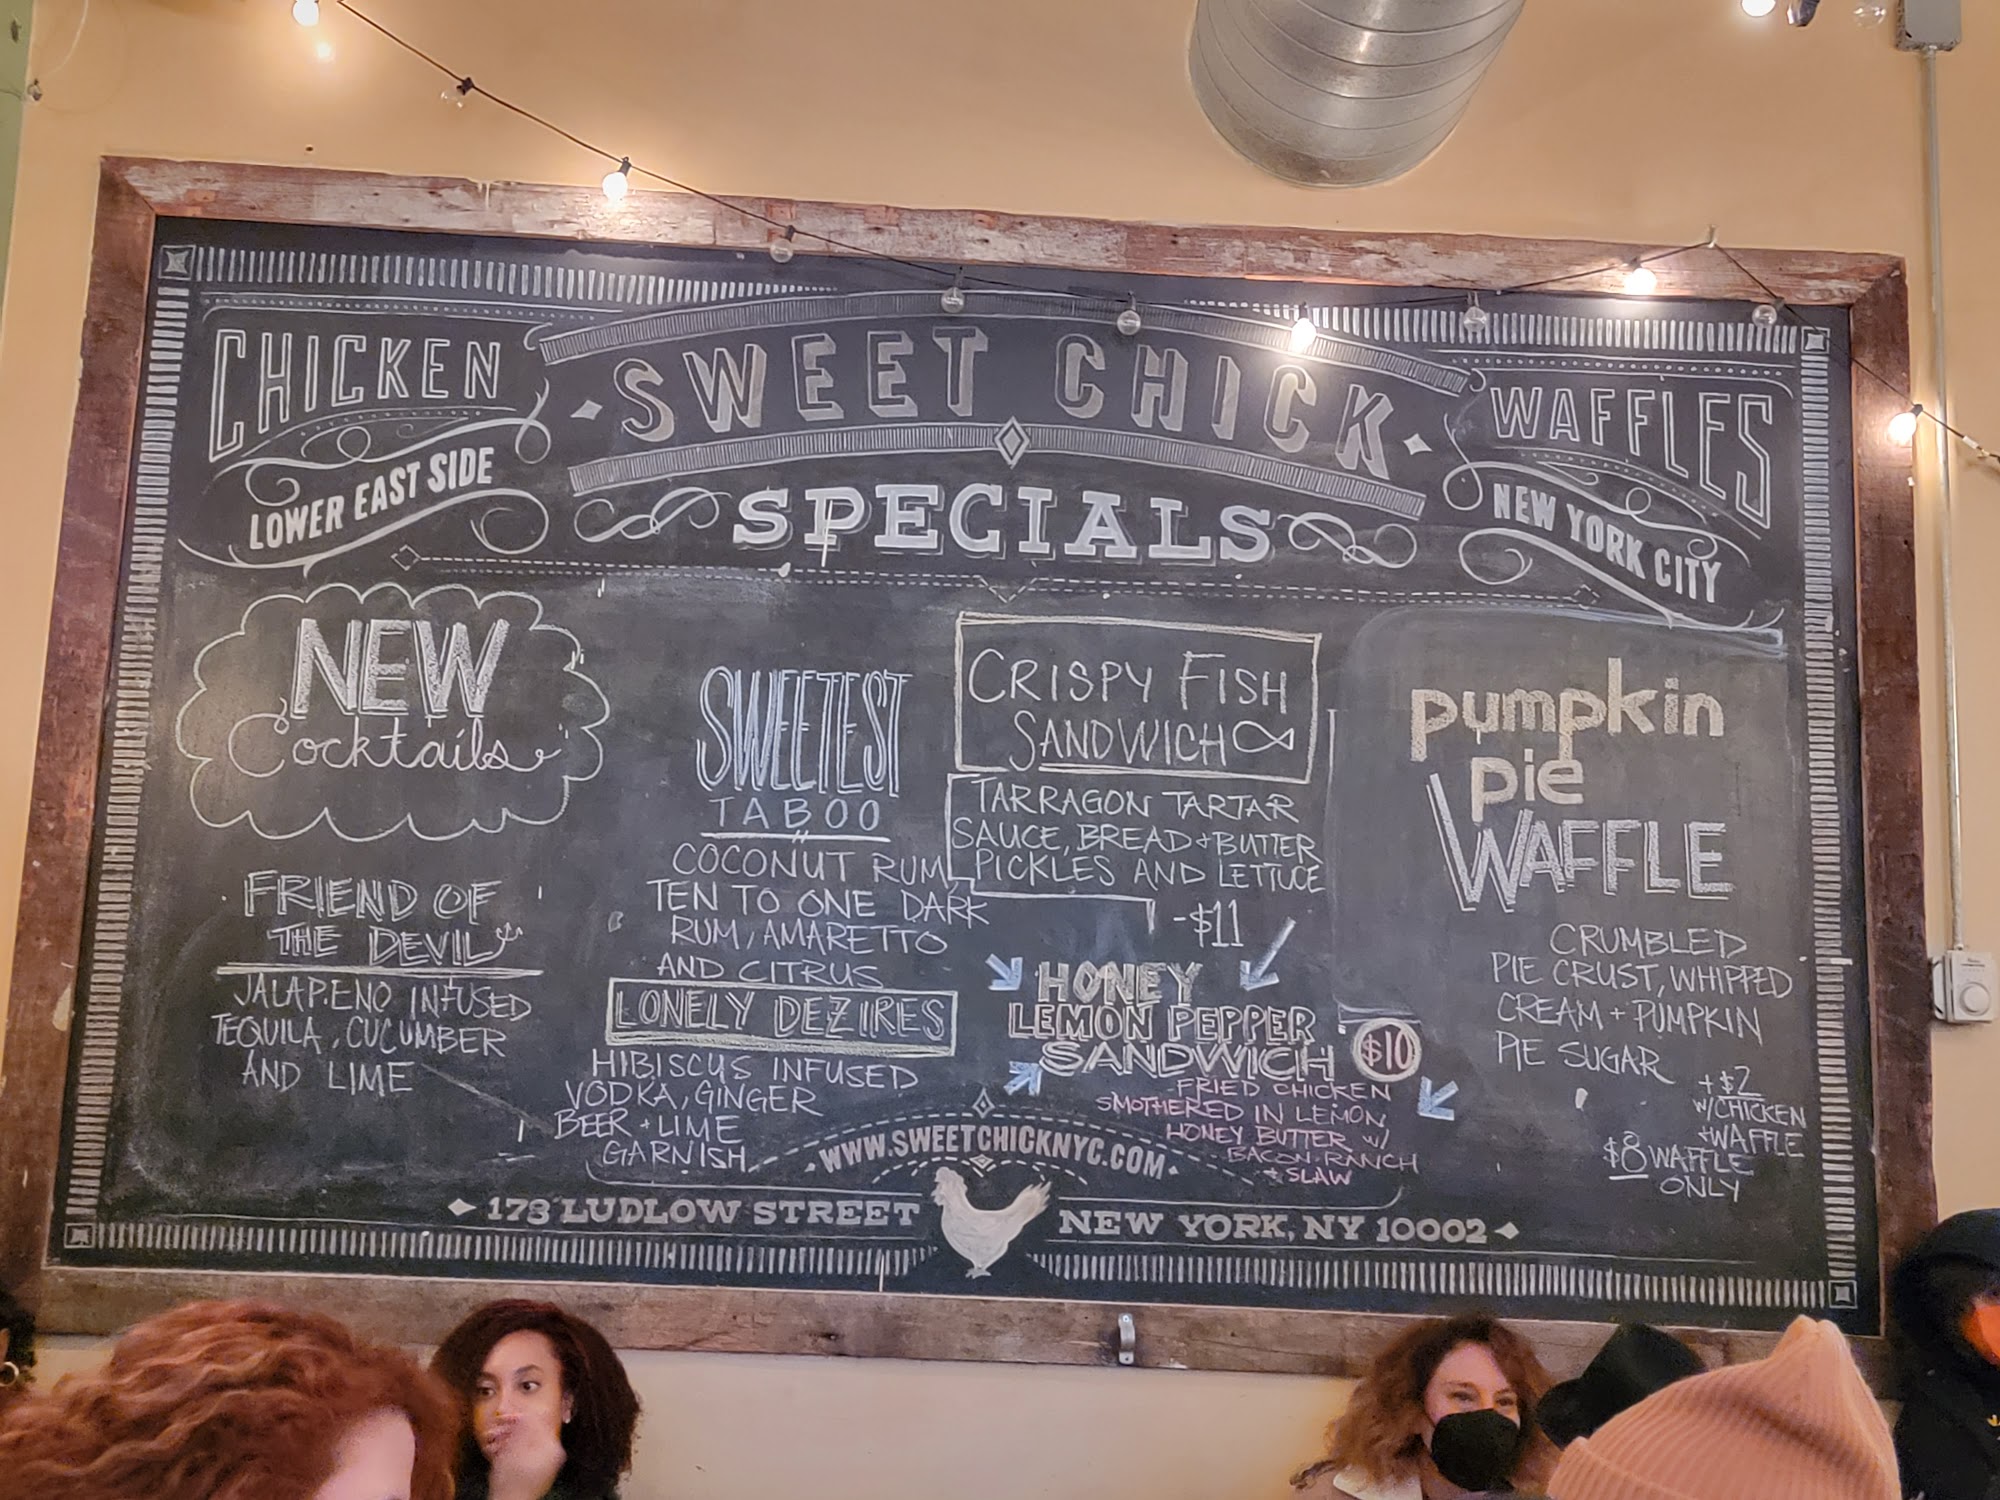 CHICKEN
LOWER EAST SIDE
SWEET CHICK
SPECIALS
WAFFLES
NEW YORK CITY
NEW
Cocktails
FRIEND OF
THE DEVIL
JALAPENO INFUSED
TEQUILA, CUCUMBER
AND LIME
SWEETEST
TABOO
COCONUT RUM,
TEN TO ONE DARK
RUM, AMARETTO
AND CITRUS
LONELY DEZIRES
HIBISCUS INFUSED
VODKA, GINGER
BEER + LIME
GARNISH
CRISPY FISH
SANDWICH
TARRAGON TARTAR
SAUCE, BREAD + BUTTER
PICKLES AND LETTUCE
-$11
HONEY
LEMON PEPPER
SANDWICH $10
FRIED CHICKEN
SMOTHERED IN LEMON,
HONEY BUTTER W/
BACON RANCH
+ SLAW
pumpkin
pie
WAFFLE
CRUMBLED
PIE CRUST, WHIPPED
CREAM + PUMPKIN
PIE SUGAR
+$2
W/CHICKEN
+WAFFLE
$8 WAFFLE
ONLY
WWW.SWEETCHICKNYC.COM
178 LUDLOW STREET NEW YORK, NY 10002